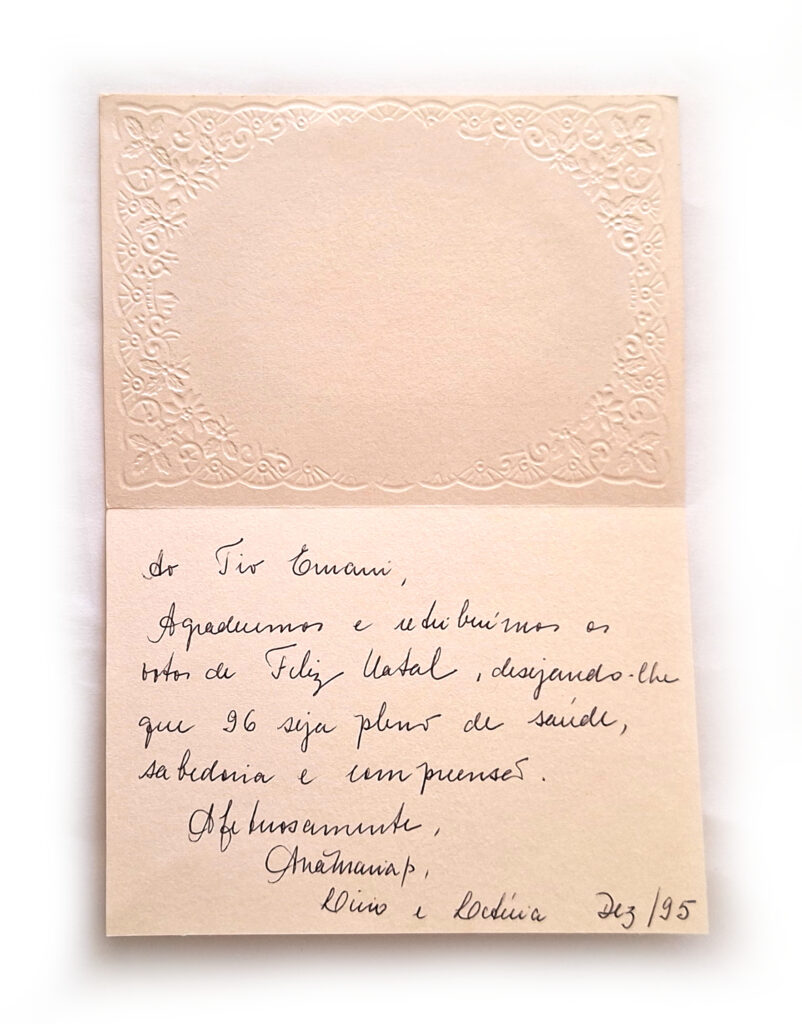 Ao Tio Ernani,
Agradecemos e retribuímos os
votos de Feliz Natal, desejando-lhe
que 96 seja pleno de saúde,
sabedoria e compreensão.
Afetuosamente,
e Dez/95